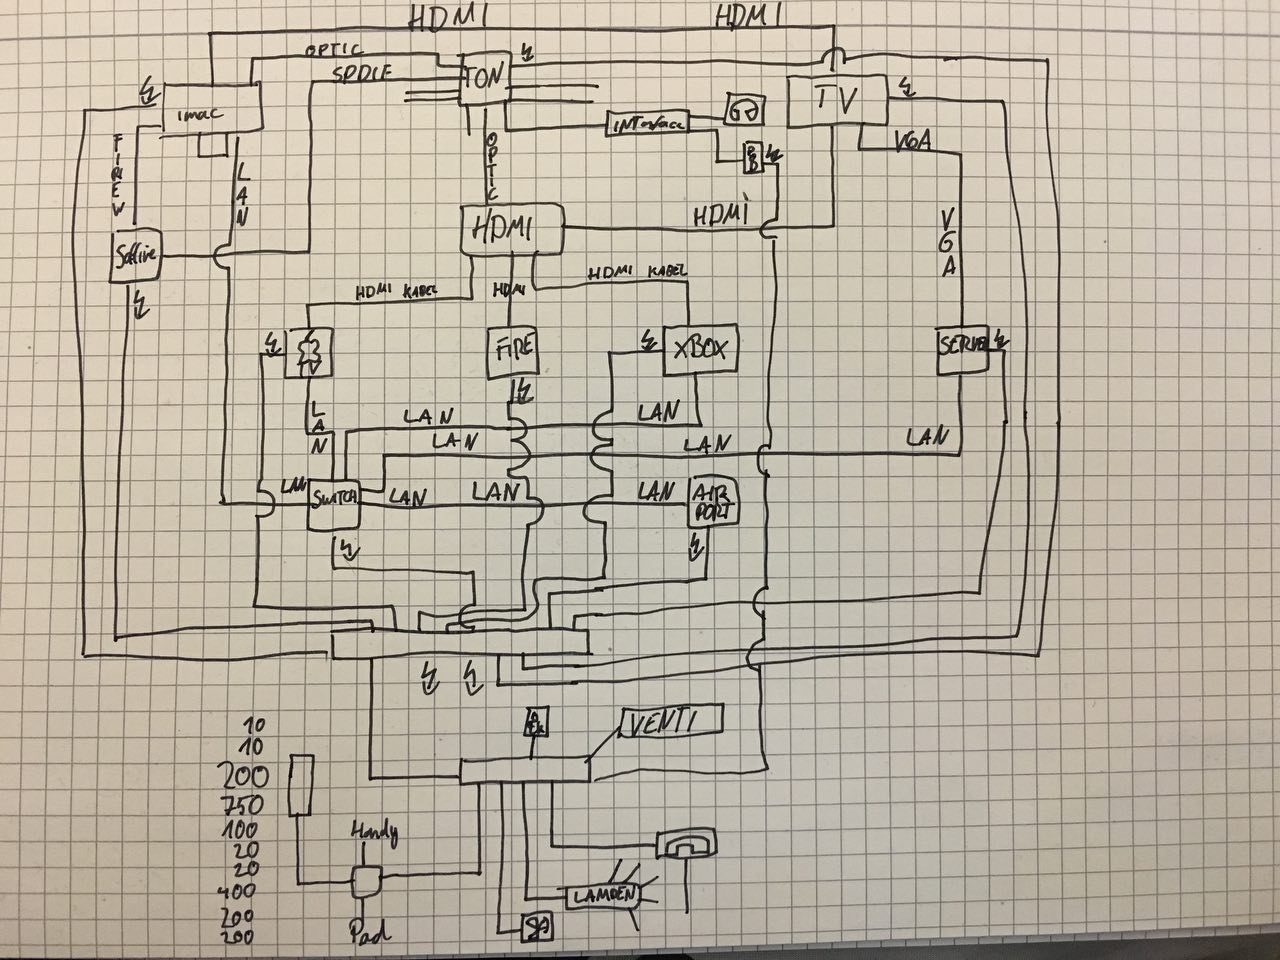 HDMI HDMI
OPTIC
SPDIF
TON
imac
TV
INTerface
VGA
FIREW
LAN
OPTIC
HDMI
HDMI
VGA
Saffire
HDMI KABEL
HDMI
HDMI KABEL
FIRE
XBOX
SERVER
LAN
LAN
LAN
LAN
LAN
LAN
LAN
SWITCH
LAN
LAN
LAN
AIR
PORT
VENTI
10
10
200
750
100
20
20
400
200
200
Handy
Pad
LAMPEN